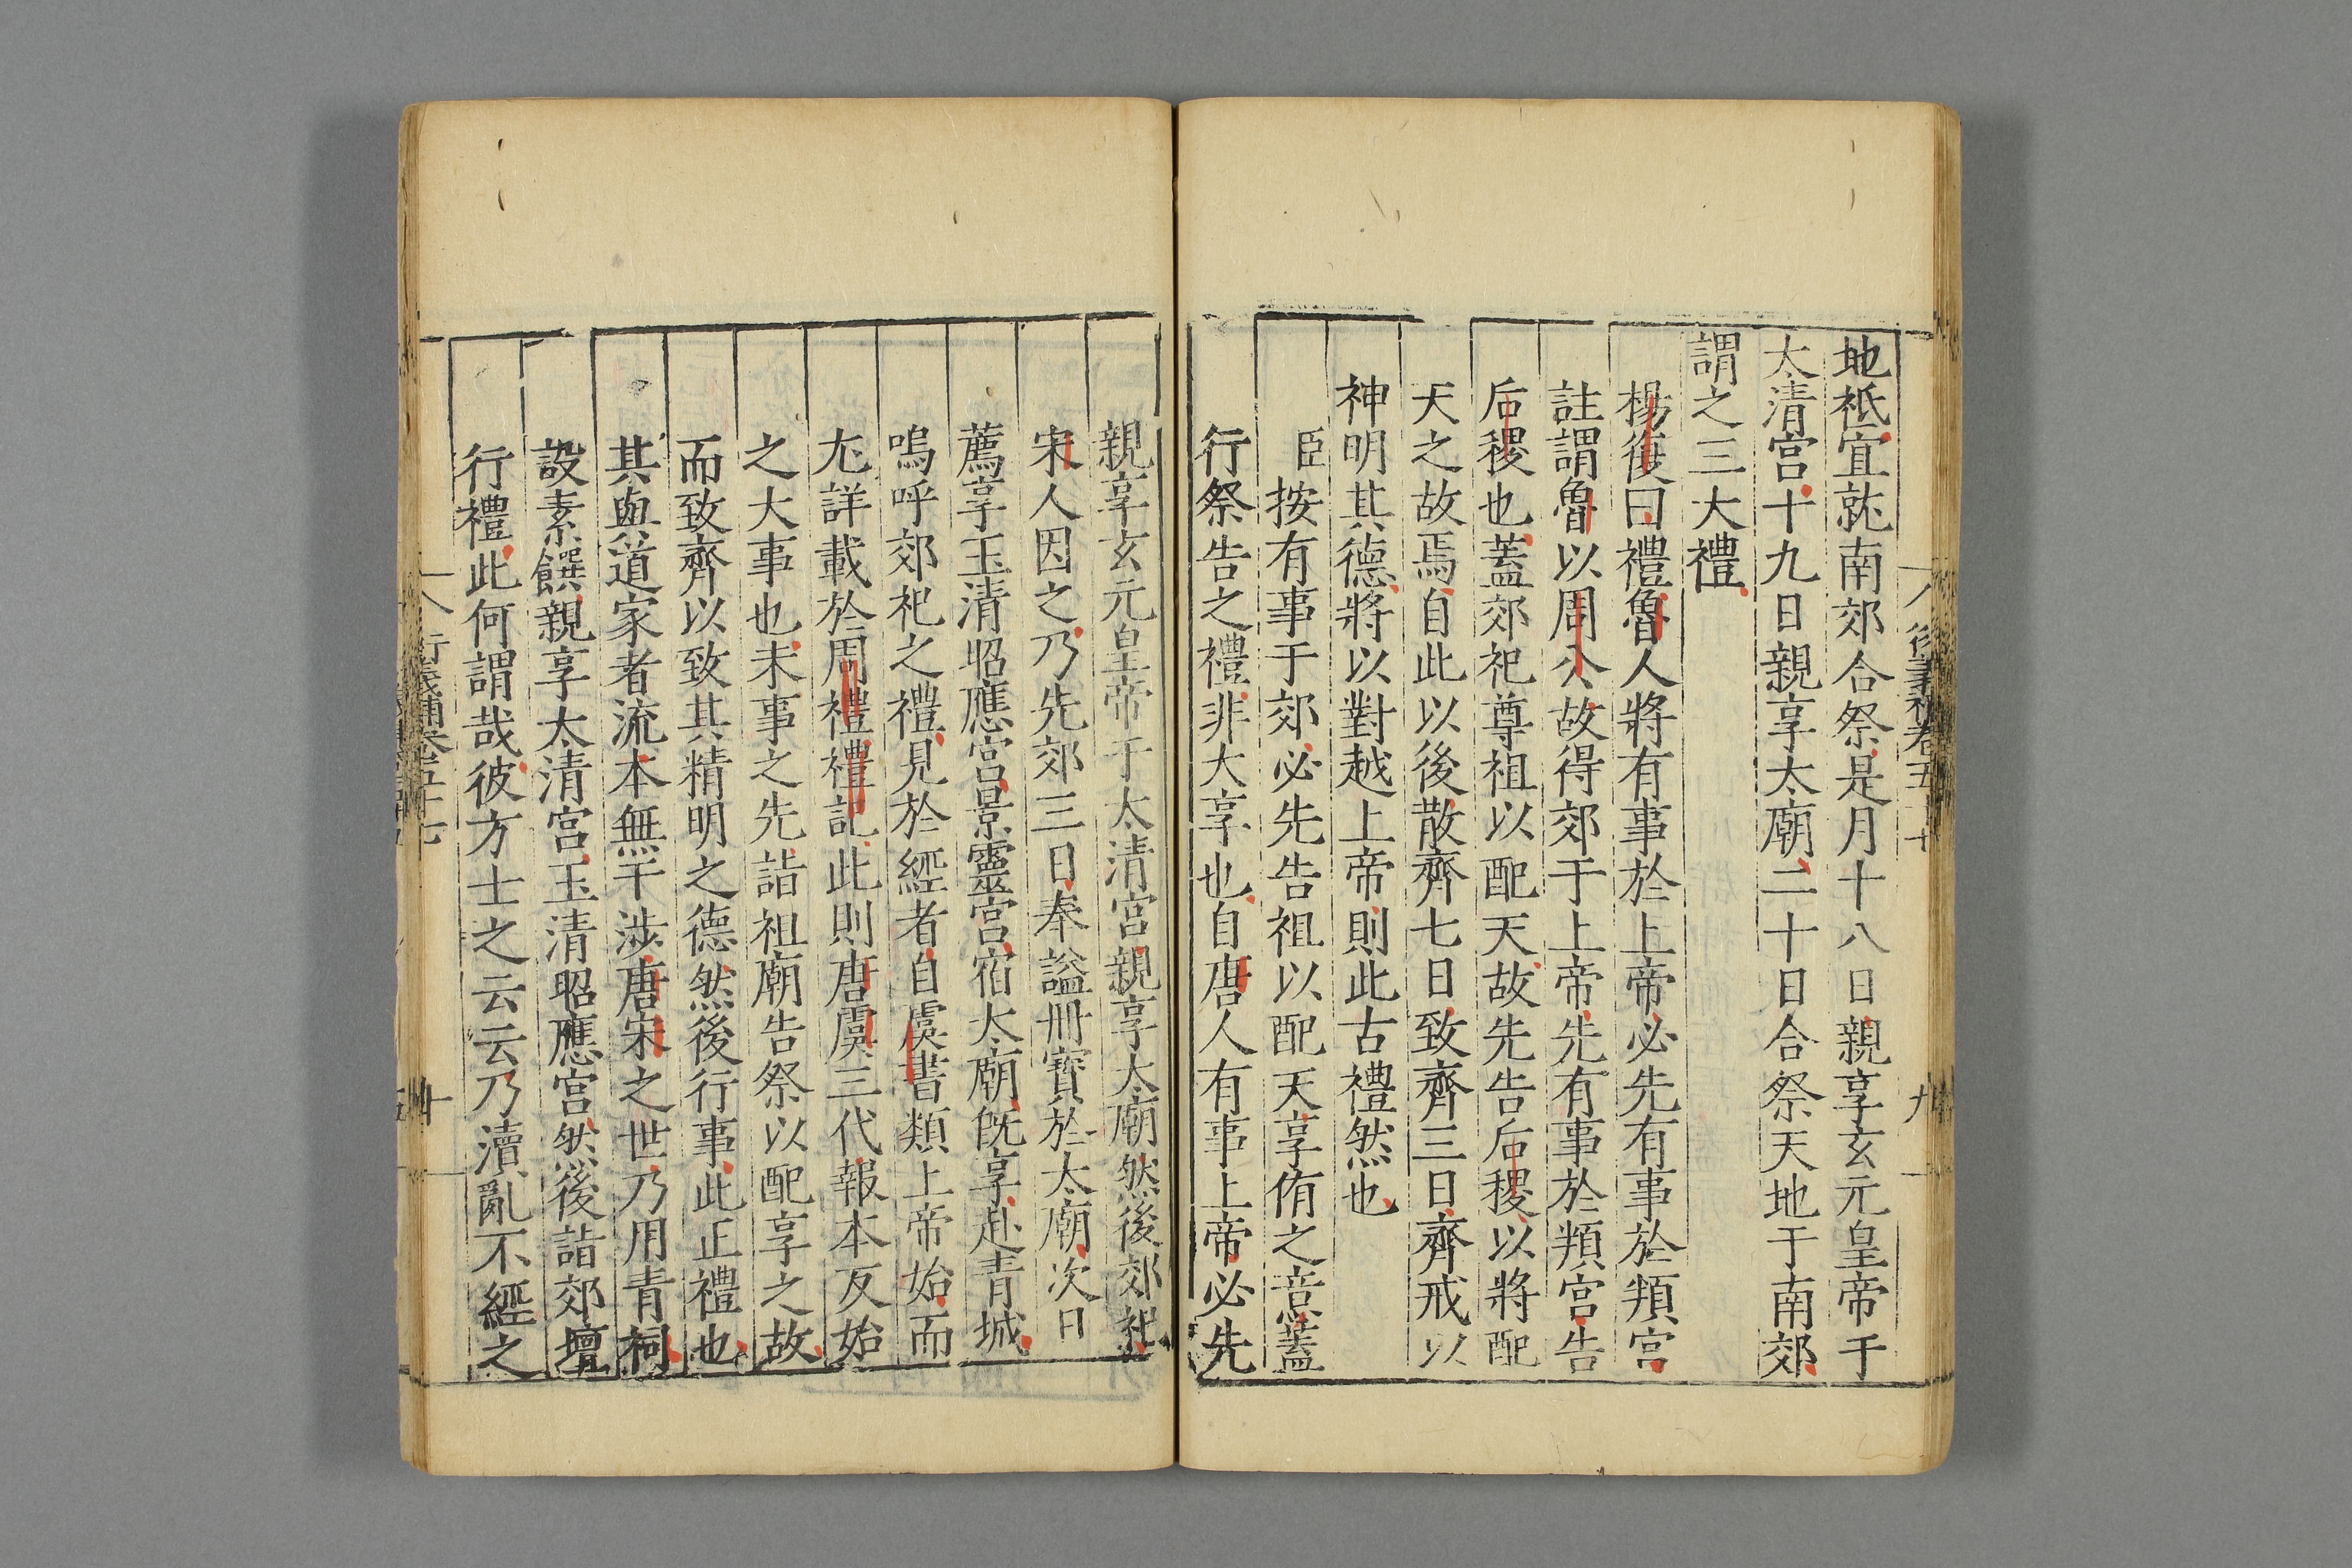 地祇宜就南郊合祭是月十八日親享玄元皇帝于
太清宮十九日親享太廟二十日合祭天地于南郊
謂之三大禮
楊復曰禮魯人將有事於上帝必先有事於頖宮
註謂魯以周公故得郊于上帝先有事於頖宮告
后稷也蓋郊祀尊祖以配天故先告后稷以將配
天之故焉自此以後散齊七日致齊三日齊戒以
神明其德將以對越上帝則此古禮然也
臣按有事于郊必先告祖以配天享侑之意蓋
行祭告之禮非大享也自唐人有事上帝必先
親享玄元皇帝于太清宮親享太廟然後郊祀
宋人因之乃先郊三日奉謚冊寶於太廟次日
薦享玉清昭應宮景靈宮宿太廟旣享赴青城
嗚呼郊祀之禮見於經者自虞書類上帝始而
尤詳載於周禮禮記此則唐虞三代報本反始
之大事也未事之先詣祖廟告祭以配享之故
而致齊以致其精明之德然後行事此正禮也
其與道家者流本無干涉唐宋之世乃用青祠
設素饌親享太清宮玉清昭應宮然後詣郊壇
行禮此何謂哉彼方士之云云乃瀆亂不經之